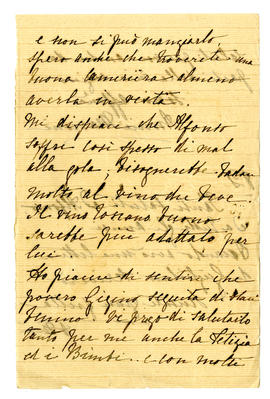 e non si può mangiarlo
spero anche che troverete una
buona cameriera almeno
averla in vista.
Mi dispiace che Alfonso
soffri così spesso di mal
alla gola, bisognerebbe badare
molto al vino che beve.
Il vino toscano buono
sarebbe più adattato per
lui
Ho piacere di sentire che
povero Gigino seguita di star
benino. Vi prego di salutarlo
tanto per me anche la Letizia
ed i Bimbi. e con molti